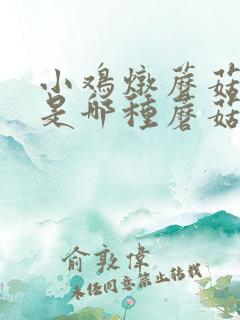 小鸡燉蘑菇
是那種蘑菇
俞敦偉
未经同意禁止转载